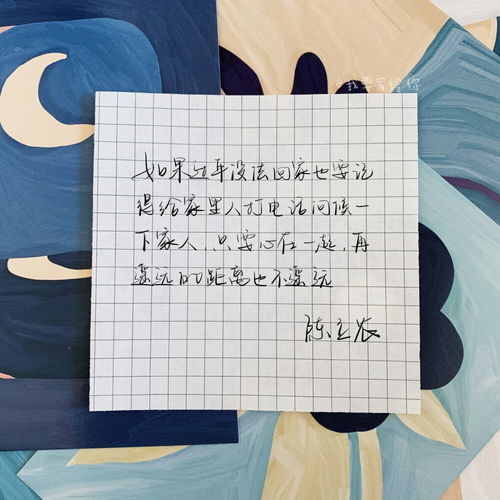 @我要写给你
如果过年没法回家也要记
得给家里人打电话问候一
下家人,只要心在一起,再
遥远的距离也不遥远
陈立农